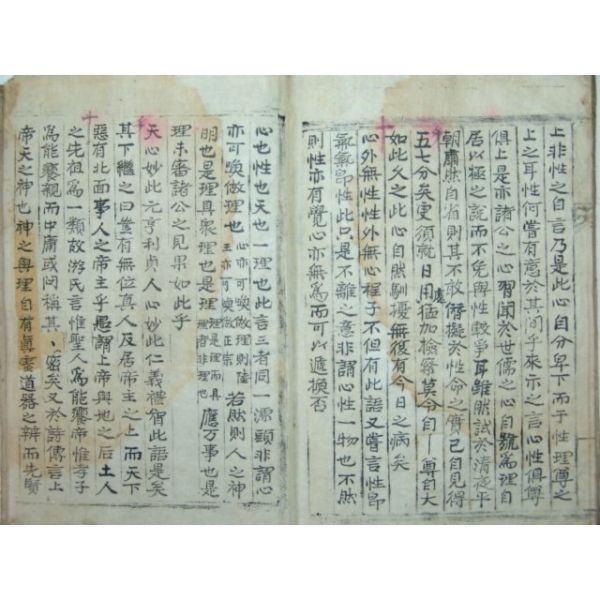 上非性之自言乃是此心自分卑下而于性理尊之
上之耳性何嘗有意於其間乎來示之言心性俱尊
俱上是亦諸公之心習聞於世儒之心自號爲理自
居以極之說而不免與性較爭耳雖然試於清夜平
朝肅然自省則其不敢儗於性命之實已自見得
五七分矣更須就日用處猛加檢察莫令自尊自大
如此久之此心自然馴擾無復有今日之病矣
心外無性性外無心程子不但有此語又嘗言性卽
氣氣卽性此只是不離之意非謂心性一物也不然
則性亦有覺心亦無爲而可以遞換否
心也性也天也一理也此言三者同一源頭非謂心
亦可喚做理也 心亦可喚做理則陸王亦可喚做正宗 若然則人之神
明也是理具衆理也是理 理是理而具理者非理也 應万事也是
理未審諸公之見果如此乎
天心妙此元亨利貞人心妙此仁義禮智此語是矣
其下繼之曰豈有無位眞人及居帝主之上而天下
惡有北面事人之帝主乎愚謂上帝與地之后土人
之先祖爲一類故游氏言惟聖人爲能饗帝惟孝子
爲能饗親而中庸或問稱其密矣又於詩傳言上
帝天之神也神之與理自有尊畫道器之辨而先賢